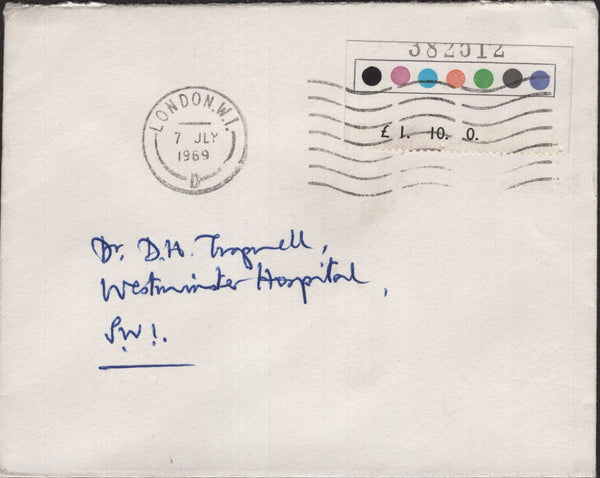 382512
£ 1. 10. 0.
LONDON.W.1.
7 JLY
1969
D
Dr. D.H. Trapnell,
Westminster Hospital,
S.W.1.